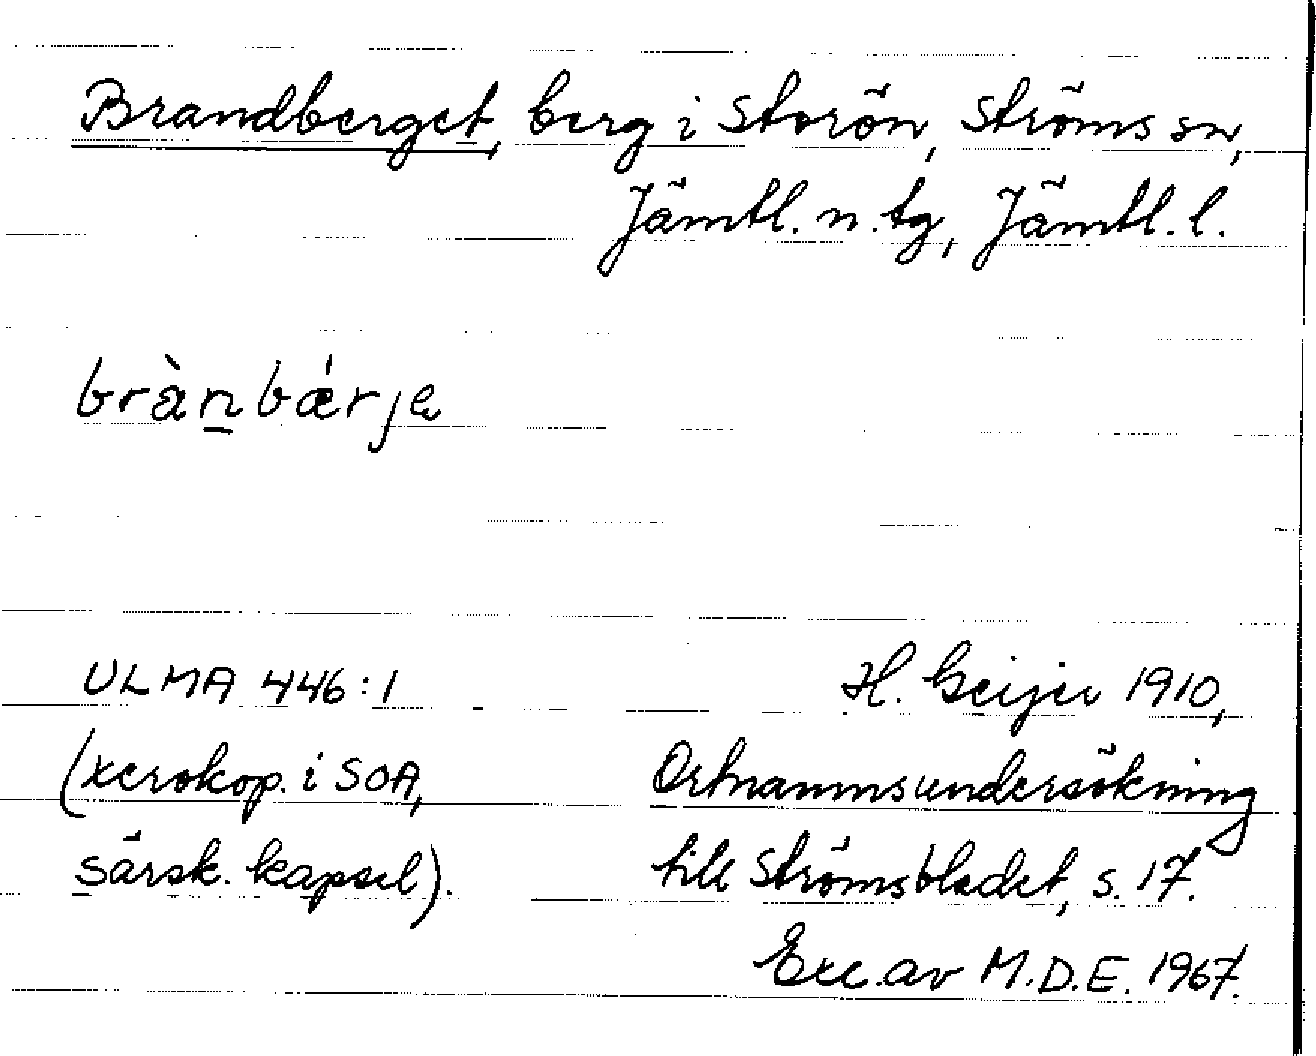 Brandberget, berg i Storön, Ströms sn,
Jämtl. n. tg, Jämtl. l.
bràn̲bǽrje
ULMA 446:1
(xerokop. i SOA,
särsk. kapsel).
H. Geijer 1910,
Ortnamnsundersökning
till Strömsbladet, s. 17.
Exc. av M.D.E. 1967.